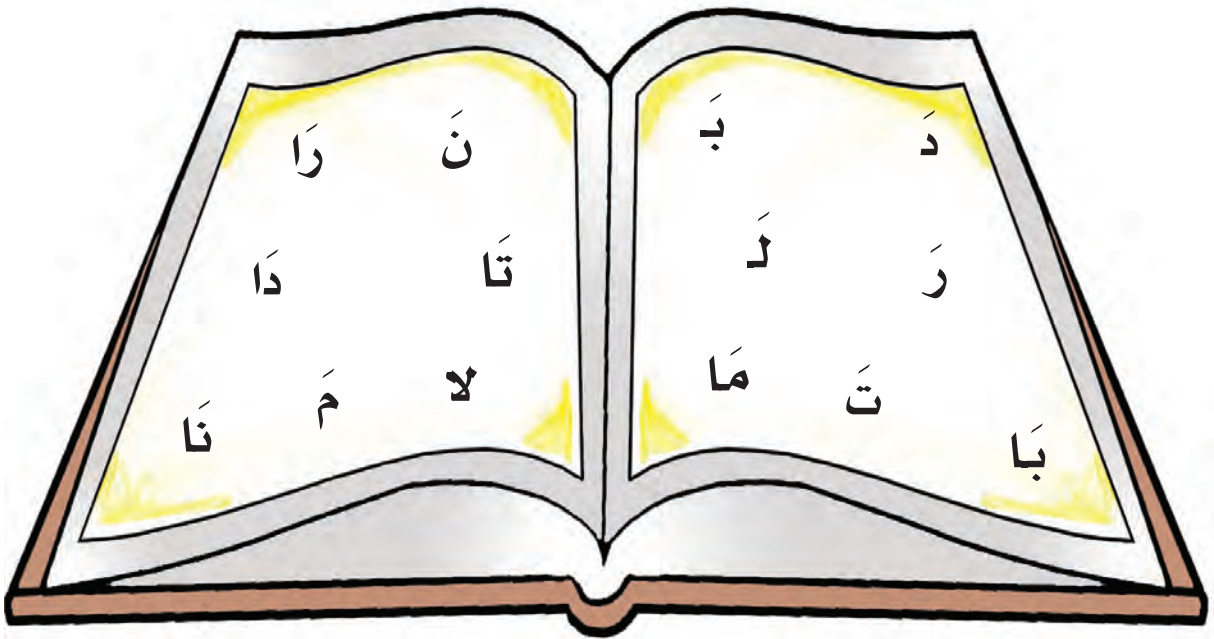 دَ بَـ
رَ لَـ
مَا تَ بَا
نَ رَا
تَا دَا
لا مَ نَا